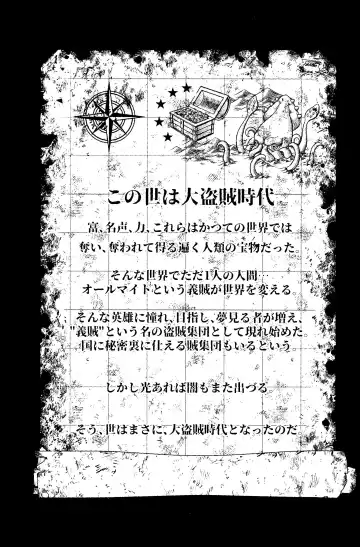 この世は大盗賊時代
富、名声、力、これらはかつての世界では
奪い、奪われて得る遍く人類の宝物だった
そんな世界でただ1人の人間…
オールマイトという義賊が世界を変える
そんな英雄に憧れ、目指し、夢見る者が増え、
"義賊"という名の盗賊集団として現れ始めた。
国に秘密裏に仕える賊集団もいるという。
しかし光あれば闇もまた出づる
そう、世はまさに、大盗賊時代となったのだ